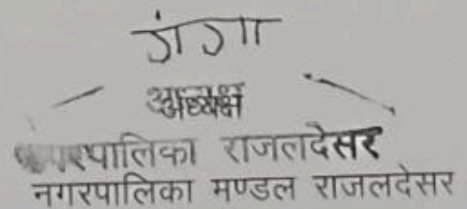 गंगा
अध्यक्ष
नगरपालिका राजलदेसर
नगरपालिका मण्डल राजलदेसर